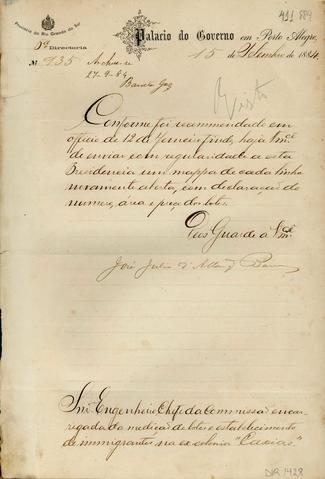 411 889
Provincia do Rio Grande do Sul
Palacio do Governo em Porto Alegre,
Directoria
15 de Setembro de 1884.
Nº 935
Archive-se
27-9-84
Visto
Conforme foi recommendado em
officio de 12 de Janeiro findo, haja Vmcê
de enviar com regularidade a esta
Presidencia um mappa de cada linha
novamente aberta, com declaração do
numero, área e preço dos lotes.
Deus Guarde a Vmcê
José Julio d'Albuqe Barros
Snr. Engenheiro Chefe da Commissão encar-
regada da medição de lotes e estabelecimento
de immigrantes, na ex-colonia "Caxias."
DIR 1428